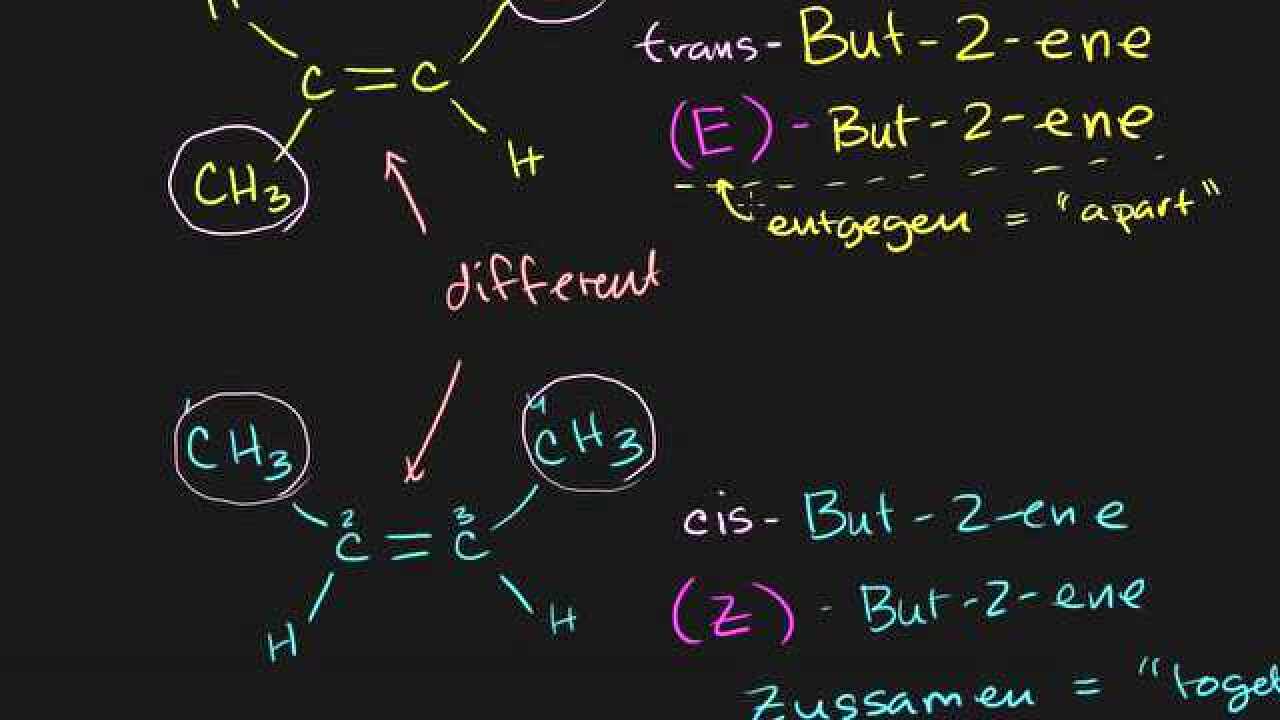 trans- But-2-ene
C = C
(E) - But-2-ene
CH3
H
entgegen = "apart"
different
1 4
CH3 CH3
2 3
C = C
cis- But-2-ene
(Z) - But-2-ene
H H
Zussamen = "